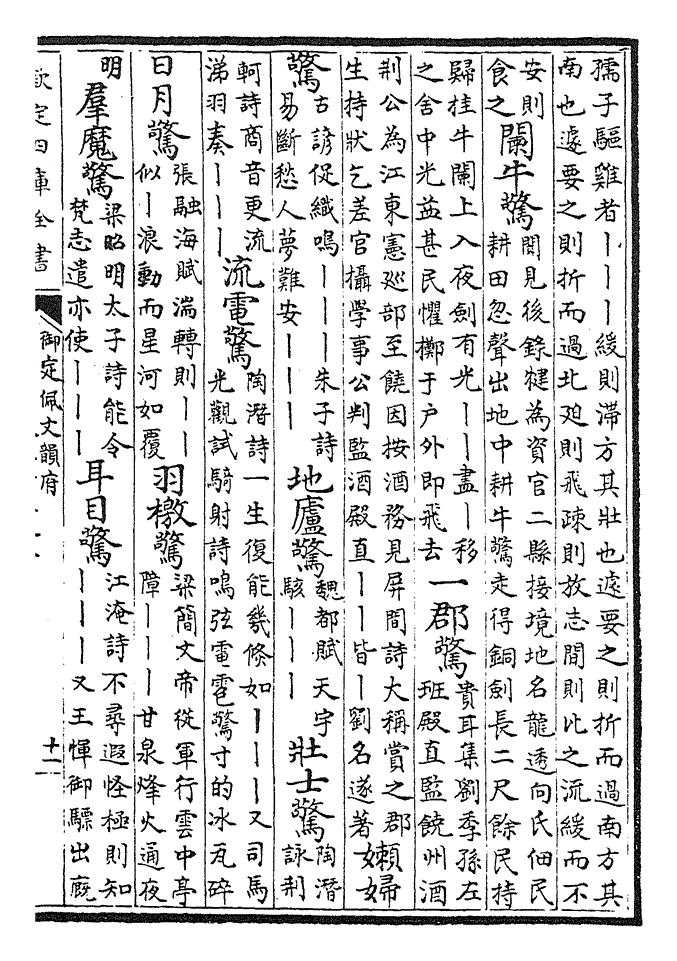 孺子驅雞者丨丨丨緩則滯方其壯也遽要之則折而過南方其
南也遽要之則折而過北廹則飛疎則放志閒則比之流緩而不
安則
食之
闌牛驚
聞見後錄犍為資官二縣接境地名龍透向氏佃民
耕田忽聲出地中耕牛驚走得銅劍長二尺餘民持
歸挂牛闌上入夜劍有光丨丨盡丨移
之舍中光益甚民懼擲于户外即飛去
一郡驚
貴耳集劉季孫左
班殿直監饒州酒
荆公為江東憲廵部至饒因按酒務見屏間詩大稱賞之郡
生持狀乞差官攝學事公判監酒殿直丨丨皆丨劉名遂著
嬾婦
驚
古諺促織鳴丨丨丨丨朱子詩
易斷愁人夢難安丨丨丨
地廬驚
魏都賦天宇
駭丨丨丨
壯士驚
陶潛
詠荆
軻詩商音更流
涕羽奏丨丨丨
流電驚
陶潛詩一生復能幾倏如丨丨丨又司馬
光觀試騎射詩鳴弦電雹驚寸的冰瓦碎
日月驚
張融海賦湍轉則丨丨
似丨浪動而星河如覆
羽檄驚
梁簡文帝從軍行雲中亭
障丨丨丨甘泉烽火通夜
明
羣魔驚
梁昭明太子詩能令
梵志遣亦使丨丨丨
耳目驚
江淹詩不尋遐怪極則知
丨丨丨又王惲御驃出廐
欽定四庫全書
御定佩文韻府
十一